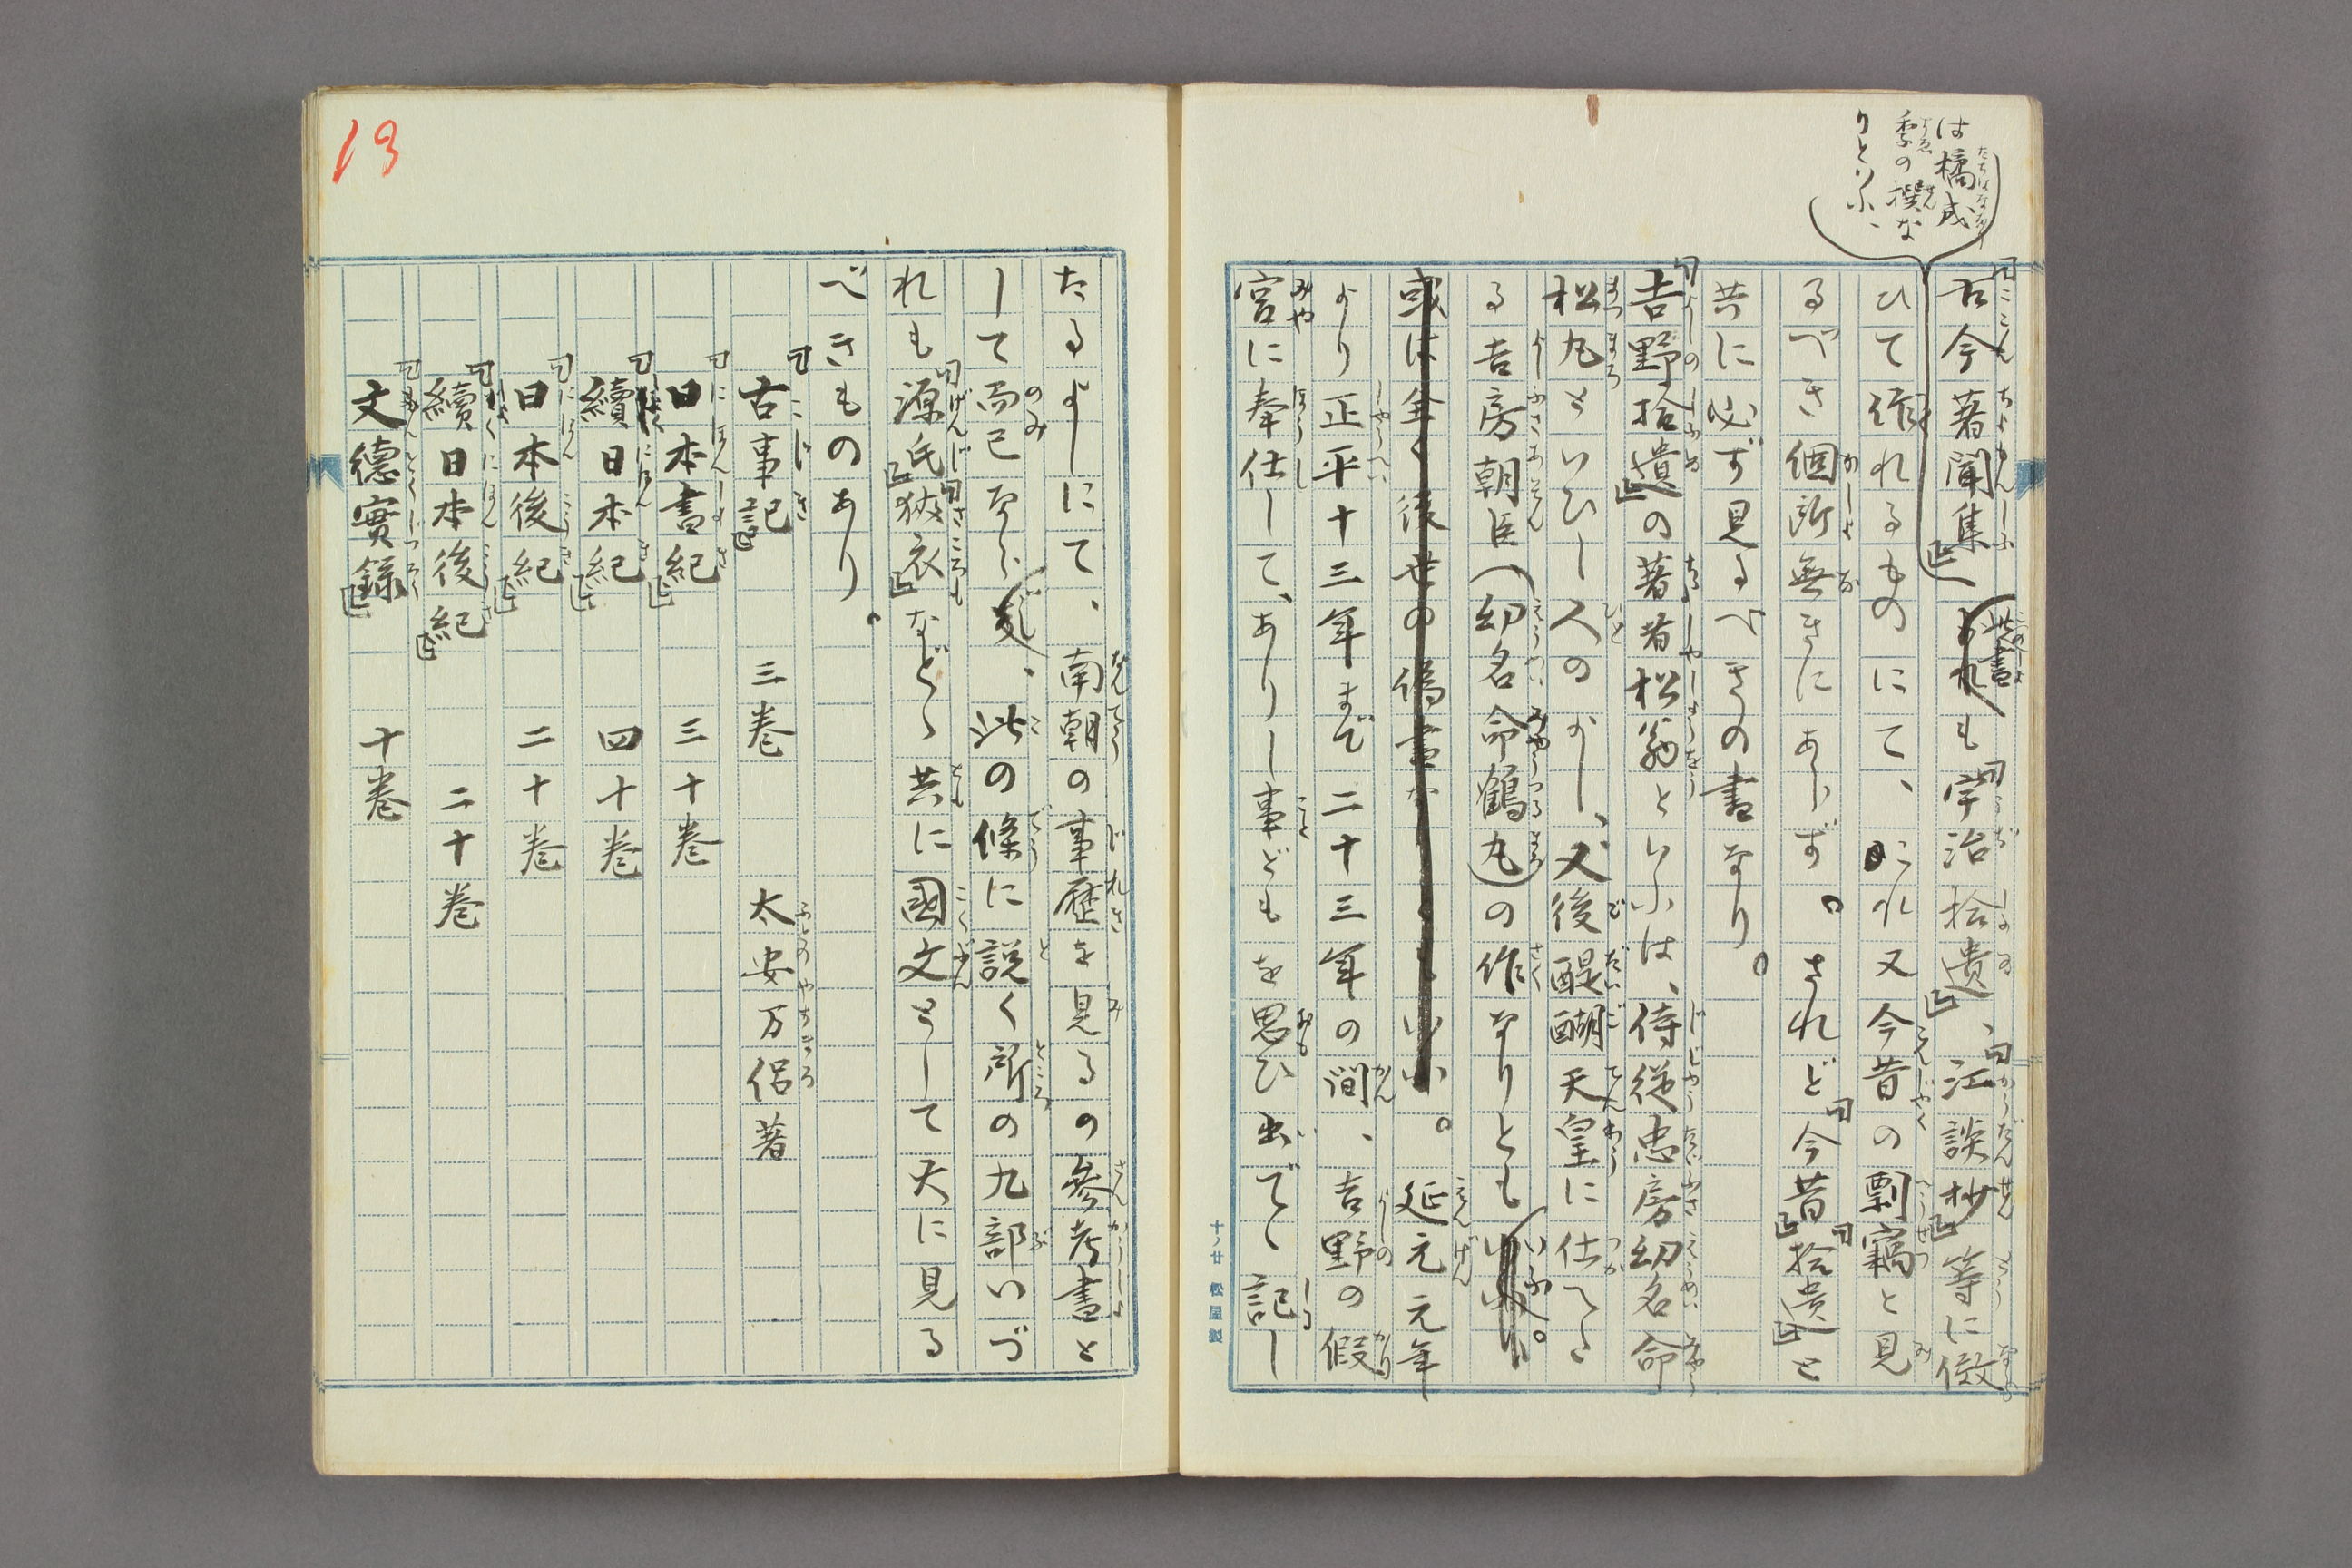 は橘成
季の撰な
りといふ、
『古今著聞集』此書も『宇治拾遺』、『江談抄』等に倣
ひて作れるものにて、これ又今昔の剽竊と見
るべき個所無きにあらず。されど『今昔』『拾遺』と
共に必ず見るべきの書なり。
『吉野拾遺』の著者松翁といふは、侍従忠房幼名命
松丸といひし人のよし、又後醍醐天皇に仕へた
る吉房朝臣(幼名命鶴丸)の作なりともいふ。
或は全く後世の偽書なりともいふ。延元元年
より正平十三年まで二十三年の間、吉野の假
宮に奉仕して、ありし事どもを思ひ出でて記し
十ノ廿 松屋製
13
たるよしにて、南朝の事歴を見るの参考書と
して而已ならず、此の條に説く所の九部いづ
れも『源氏』『狭衣』などゝ共に國文として大に見る
べきものあり。
『古事記』 三巻 太安万侶著
『日本書紀』 三十巻
『續日本紀』 四十巻
『日本後紀』 二十巻
『續日本後紀』 二十巻
『文德實錄』 十巻